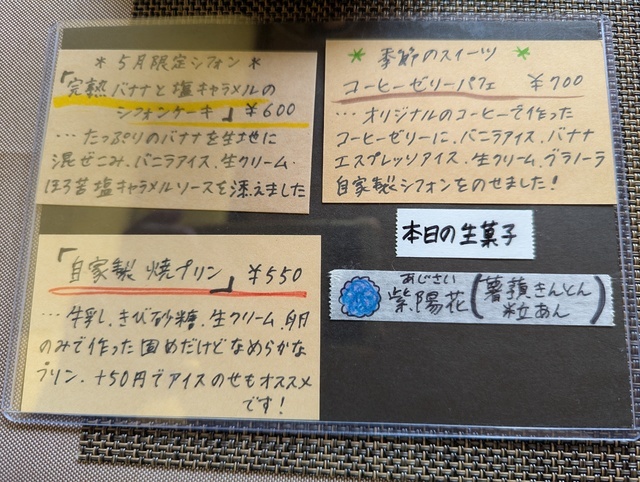 * 5月限定シフォン *
「完熟バナナと塩キャラメルの
シフォンケーキ」 ¥600
… たっぷりのバナナを生地に
混ぜこみ、バニラアイス、生クリーム、
ほろ苦塩キャラメルソースを添えました
* 季節のスイーツ *
コーヒーゼリーパフェ ¥700
… オリジナルのコーヒーで作った
コーヒーゼリーに、バニラアイス、バナナ
エスプレッソアイス、生クリーム、グラノーラ
自家製シフォンをのせました!
本日の生菓子
あじさい
紫陽花(薯蕷きんとん
粒あん)
「自家製 焼プリン」 ¥550
… 牛乳、きび砂糖、生クリーム、卵
のみで作った固めだけどなめらかな
プリン、+50円でアイスのせもオススメ
です!